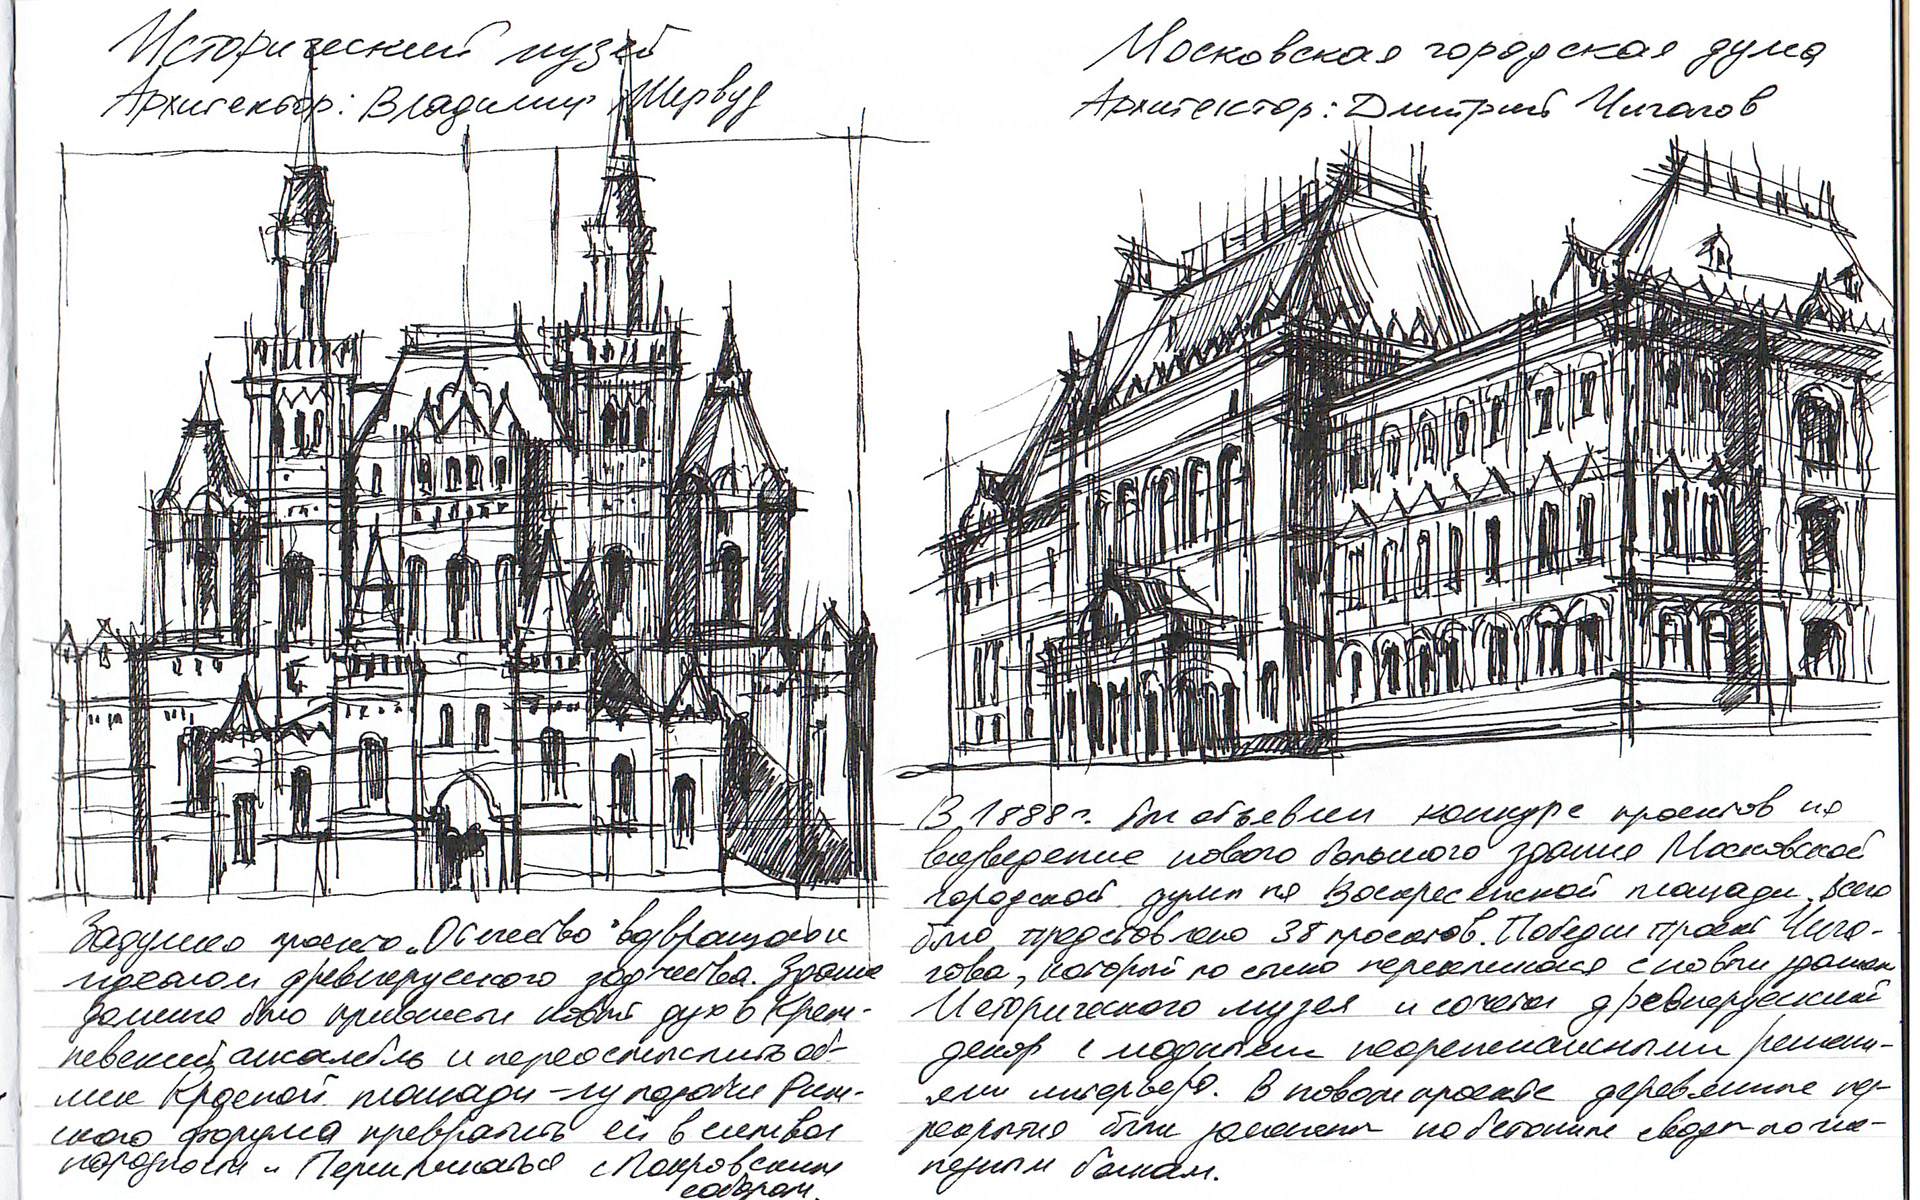 Исторический музей
Архитектор: Владимир Шервуд
Задумка проекта „Отечество" возвращала к
идеалам древнерусского зодчества. Здание
должно было привнести новый дух в Крем-
левский ансамбль и переосмыслить об-
лик Красной площади - из подобия Рим-
ского форума превратить её в символ
народности и перекликаться с Покровским
собором.
Московская городская дума
Архитектор: Дмитрий Чичагов
В 1888г. был объявлен конкурс проектов на
возведение нового большого здания Московской
городской думы на Воскресенской площади. Всего
было представлено 38 проектов. Победил проект Чича-
гова, который по стилю перекликался с новым зданием
Исторического музея и сочетал древнерусский
декор с модными неоренессансными решени-
ями интерьера. В новом проекте деревянные пе-
рекрытия были заменены на бетонные своды по же-
лезным балкам.